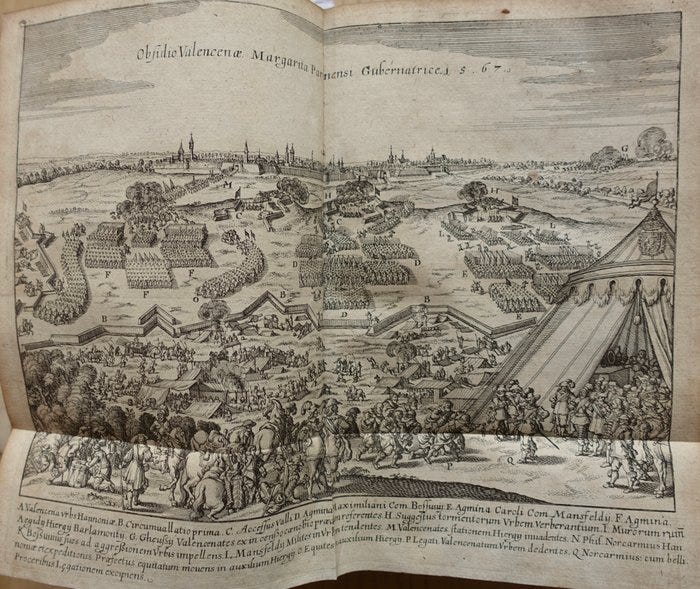 Obsidio Valencenæ. Margarita Parmensi Gubernatrice. 1567.
G
M
C
H
H
L
L
L
I
F
F
F
O
D
E
D
B
B
D
B
P
Q
A Valencena vrbs Hannoniæ. B. Circumuallatio prima. C. Accessus Valli. D. Agmina Maximiliani Com. Bossuuij. E. Agmina Caroli Com. Mansfeldij. F. Agmina
Aegidij Hiergij Barlamontij. G. Gheusij Valencenates præferentes. H. Suggestus tormentorum Vrbem Verberantium. I. Murorum
K. Bossuuius suos ad aggressionem Vrbis impellens. L. Mansfeldij Milites in Vrbem tendentes. M. Valencenates stationem Hiergij inuadentes. N. Phil. Norcarmius Han
noniæ et expeditionis Præfectus equitatum mouens in auxilium Hiergij. O. Equites auxilium Hiergij. P. Legati Valencenatum Vrbem dedentes. Q. Norcarmius cum belli
Proceribus Legationem excipiens.